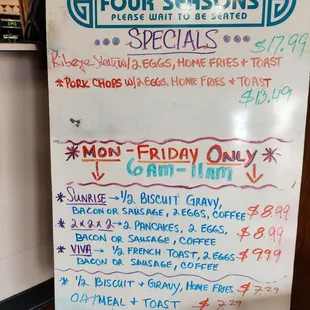 FOUR SEASONS
PLEASE WAIT TO BE SEATED
SPECIALS
$17.99
Ribeye Steak W/2 EGGS, HOME FRIES + TOAST
*PORK CHOPS W/2 EGGS, HOME FRIES + TOAST
$13.49
*MON-FRIDAY ONLY*
6AM-11AM
*SUNRISE→ 1/2 BISCUIT GRAVY,
BACON OR SAUSAGE, 2 EGGS, COFFEE $8.99
*2x2x2→ 2 PANCAKES, 2 EGGS,
BACON OR SAUSAGE, COFFEE $8.99
*VIVA→ 1/2 FRENCH TOAST, 2 EGGS
BACON OR SAUSAGE, COFFEE $9.99
*1/2 BISCUIT + GRAVY, HOME FRIES $7.29
OATMEAL + TOAST $7.29